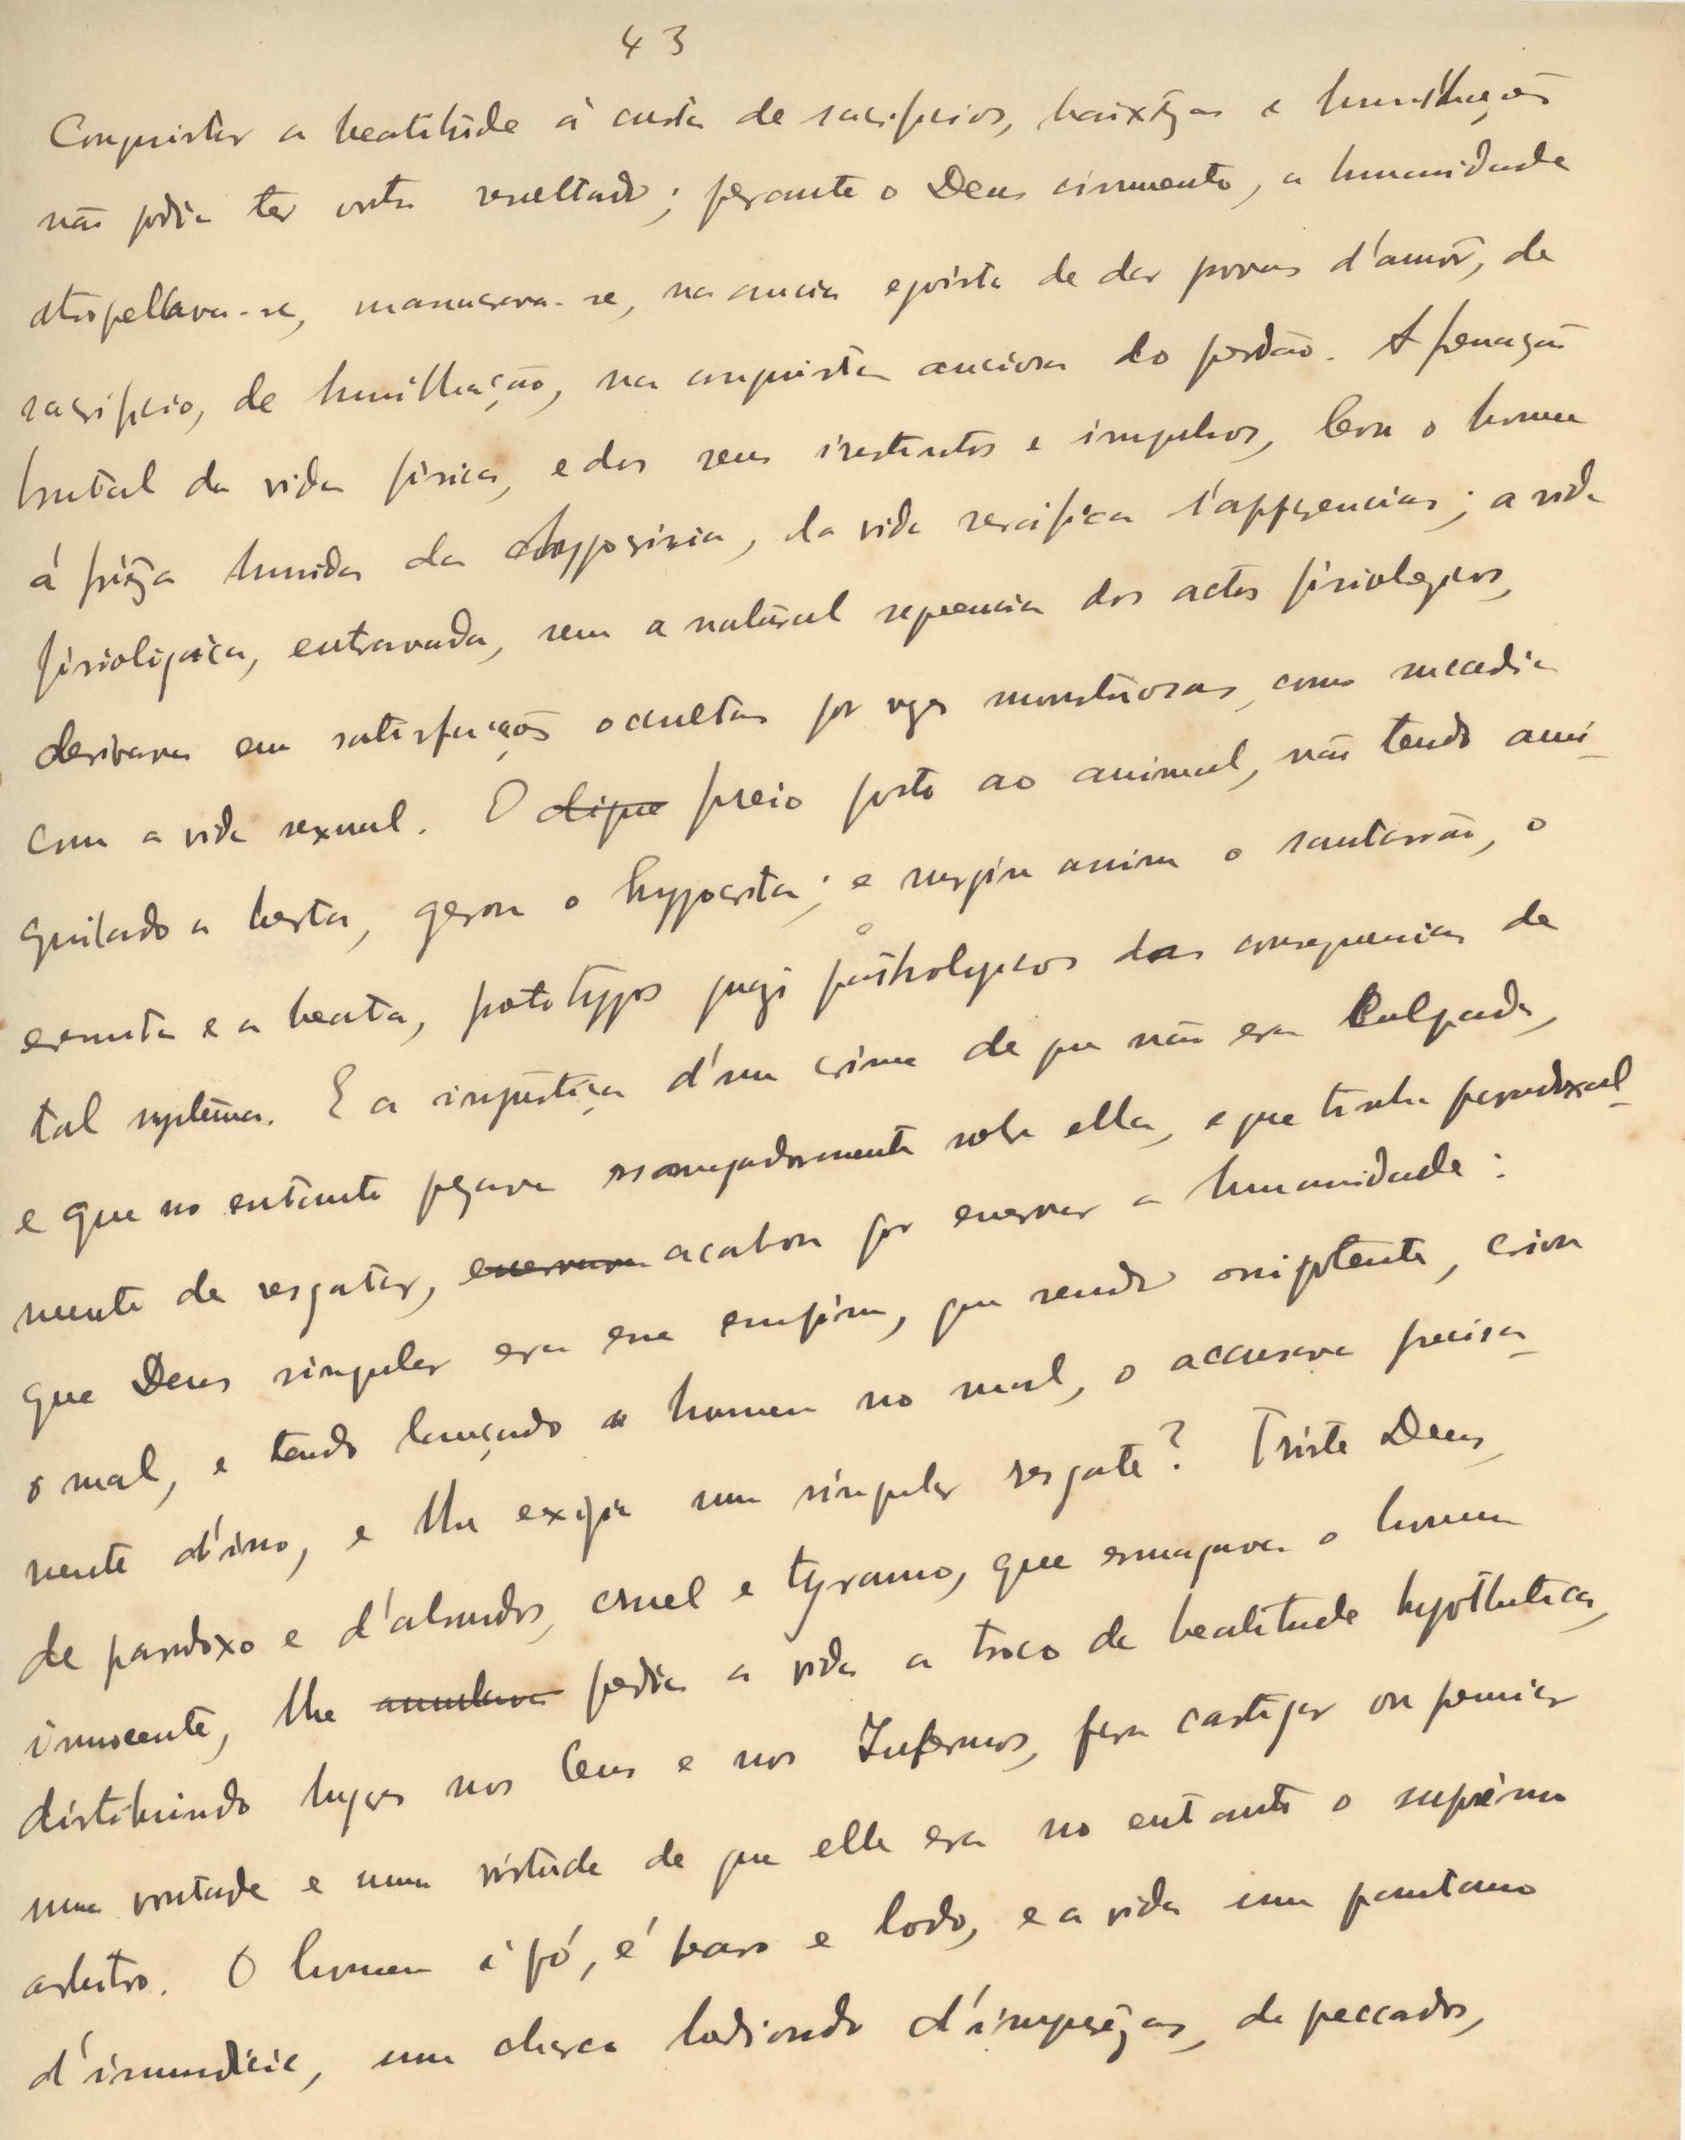 43
Conquistar a beatitude á custa de sacrificios, baixezas e humilhações
não podia ter outro resultado; perante o Deus ciumento, a humanidade
atropellava-se, massacrava-se, na ancia egoista de dar provas d'amôr, de
sacrificio, de humilhação, na conquista anciosa do perdão. A
brutal da vida fisica, e dos seus instintos e impulsos, leva o homem
á frieza humida da hyppocrisia, da vida sacrificada apparencias; a vida
fisiologica, entravada, sem a natural sequencia dos actos fisiologicos,
derivava em satisfações occultas por vezes monstruosas, como succedia
com a vida sexual. O dique freio posto ao animal, não tendo ani-
quilado a besta, gerou o hyppocrita; e surgiu assim o santarrão, o
eremita e a beata, prototypos quasi pathologicos das consequencias de
tal systema. E a injustiça d'um crime de que não era culpada,
e que no entanto pesava esmagadoramente sobre ella, e que tinha paradoxal-
mente de resgatar, enervava acabou por enervar a humanidade:
que Deus singular era esse emfim, que sendo onipotente, criou
o mal, e tendo lançado o homem no mal, o accusava precisa-
mente d'isso, e lhe exigia um singular resgate? Triste Deus,
de paradoxo e d'absurdos, cruel e tyranno, que esmagava o homem
innocente, lhe annulava pedia a vida a troco da beatitude hypothetica,
distribuindo lugares nos Ceus e nos Infernos, para castigar ou premiar
uma vontade e uma virtude de que elle era no entanto o suprêmo
arbitro. O homem é pó, é barro e lodo, e a vida um pantano
d'immundicie, um charco hediondo d'impurezas, de peccados,